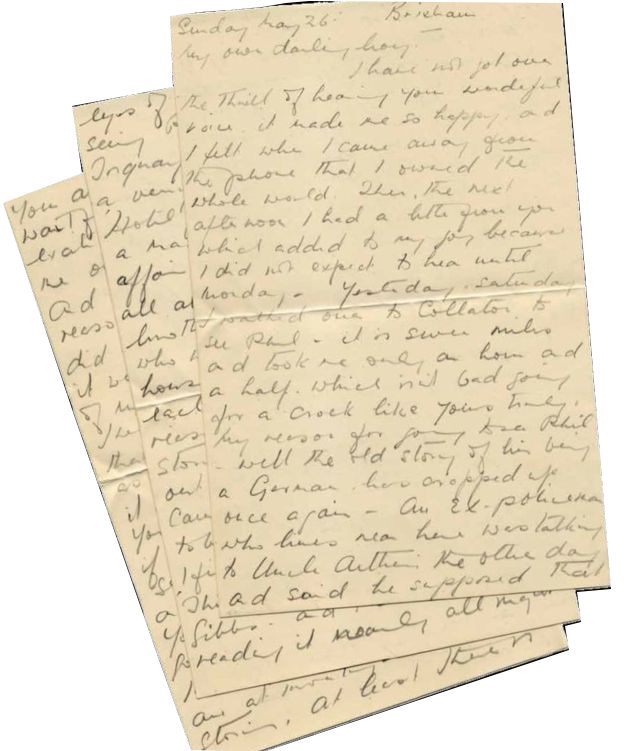 Sunday May 26. Brixham
My own darling boy.
I have not got over
the thrill of hearing your wonderful
voice. it made me so happy. and
I felt when I came away from
the phone that I owned the
whole world. Then, the next
afternoon I had a letter from you
which added to my joy because
I did not expect to hear until
Monday. - Yesterday, Saturday
I walked over to Collaton to
see Phil - it is seven miles
and took me only an hour and
a half. which isn't bad going
for a crock like yours truly.
My reason for going to see Phil
- well the old story of his being
a German has cropped up
once again - An Ex-policeman
who lives near here was talking
to Uncle Arthur the other day
and said he supposed that
eyes of
seing
Torquay
a very
Hotel
a ma
affair
all a
who
hous
each
reas
stor
out
came
to b
I fe
The
Gibbs. and
reading it nearly all
You a
want
exac
me o
and
reaso
did
it w
of m
the
as
it
yo
if
are at
stories. at least there is